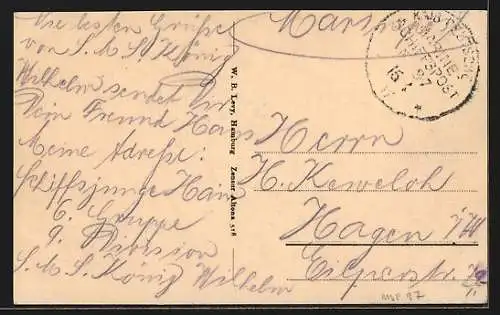 Die besten Grüße
von S.M.S. König
Wilhelm sendet Dir
Dein Freund Hans
Meine Adresse:
Schiffsjunge Hain
6. Gruppe
9. Division
S.M.S. König Wilhelm
W. B. Levy, Hamburg Zensur Altona 518
KAIS. DEUTSCHE
MARINE-
SCHIFFSPOST
15
Herrn
H. Keweloh
Hagen i/W
Eilperstr.
MSP. 97